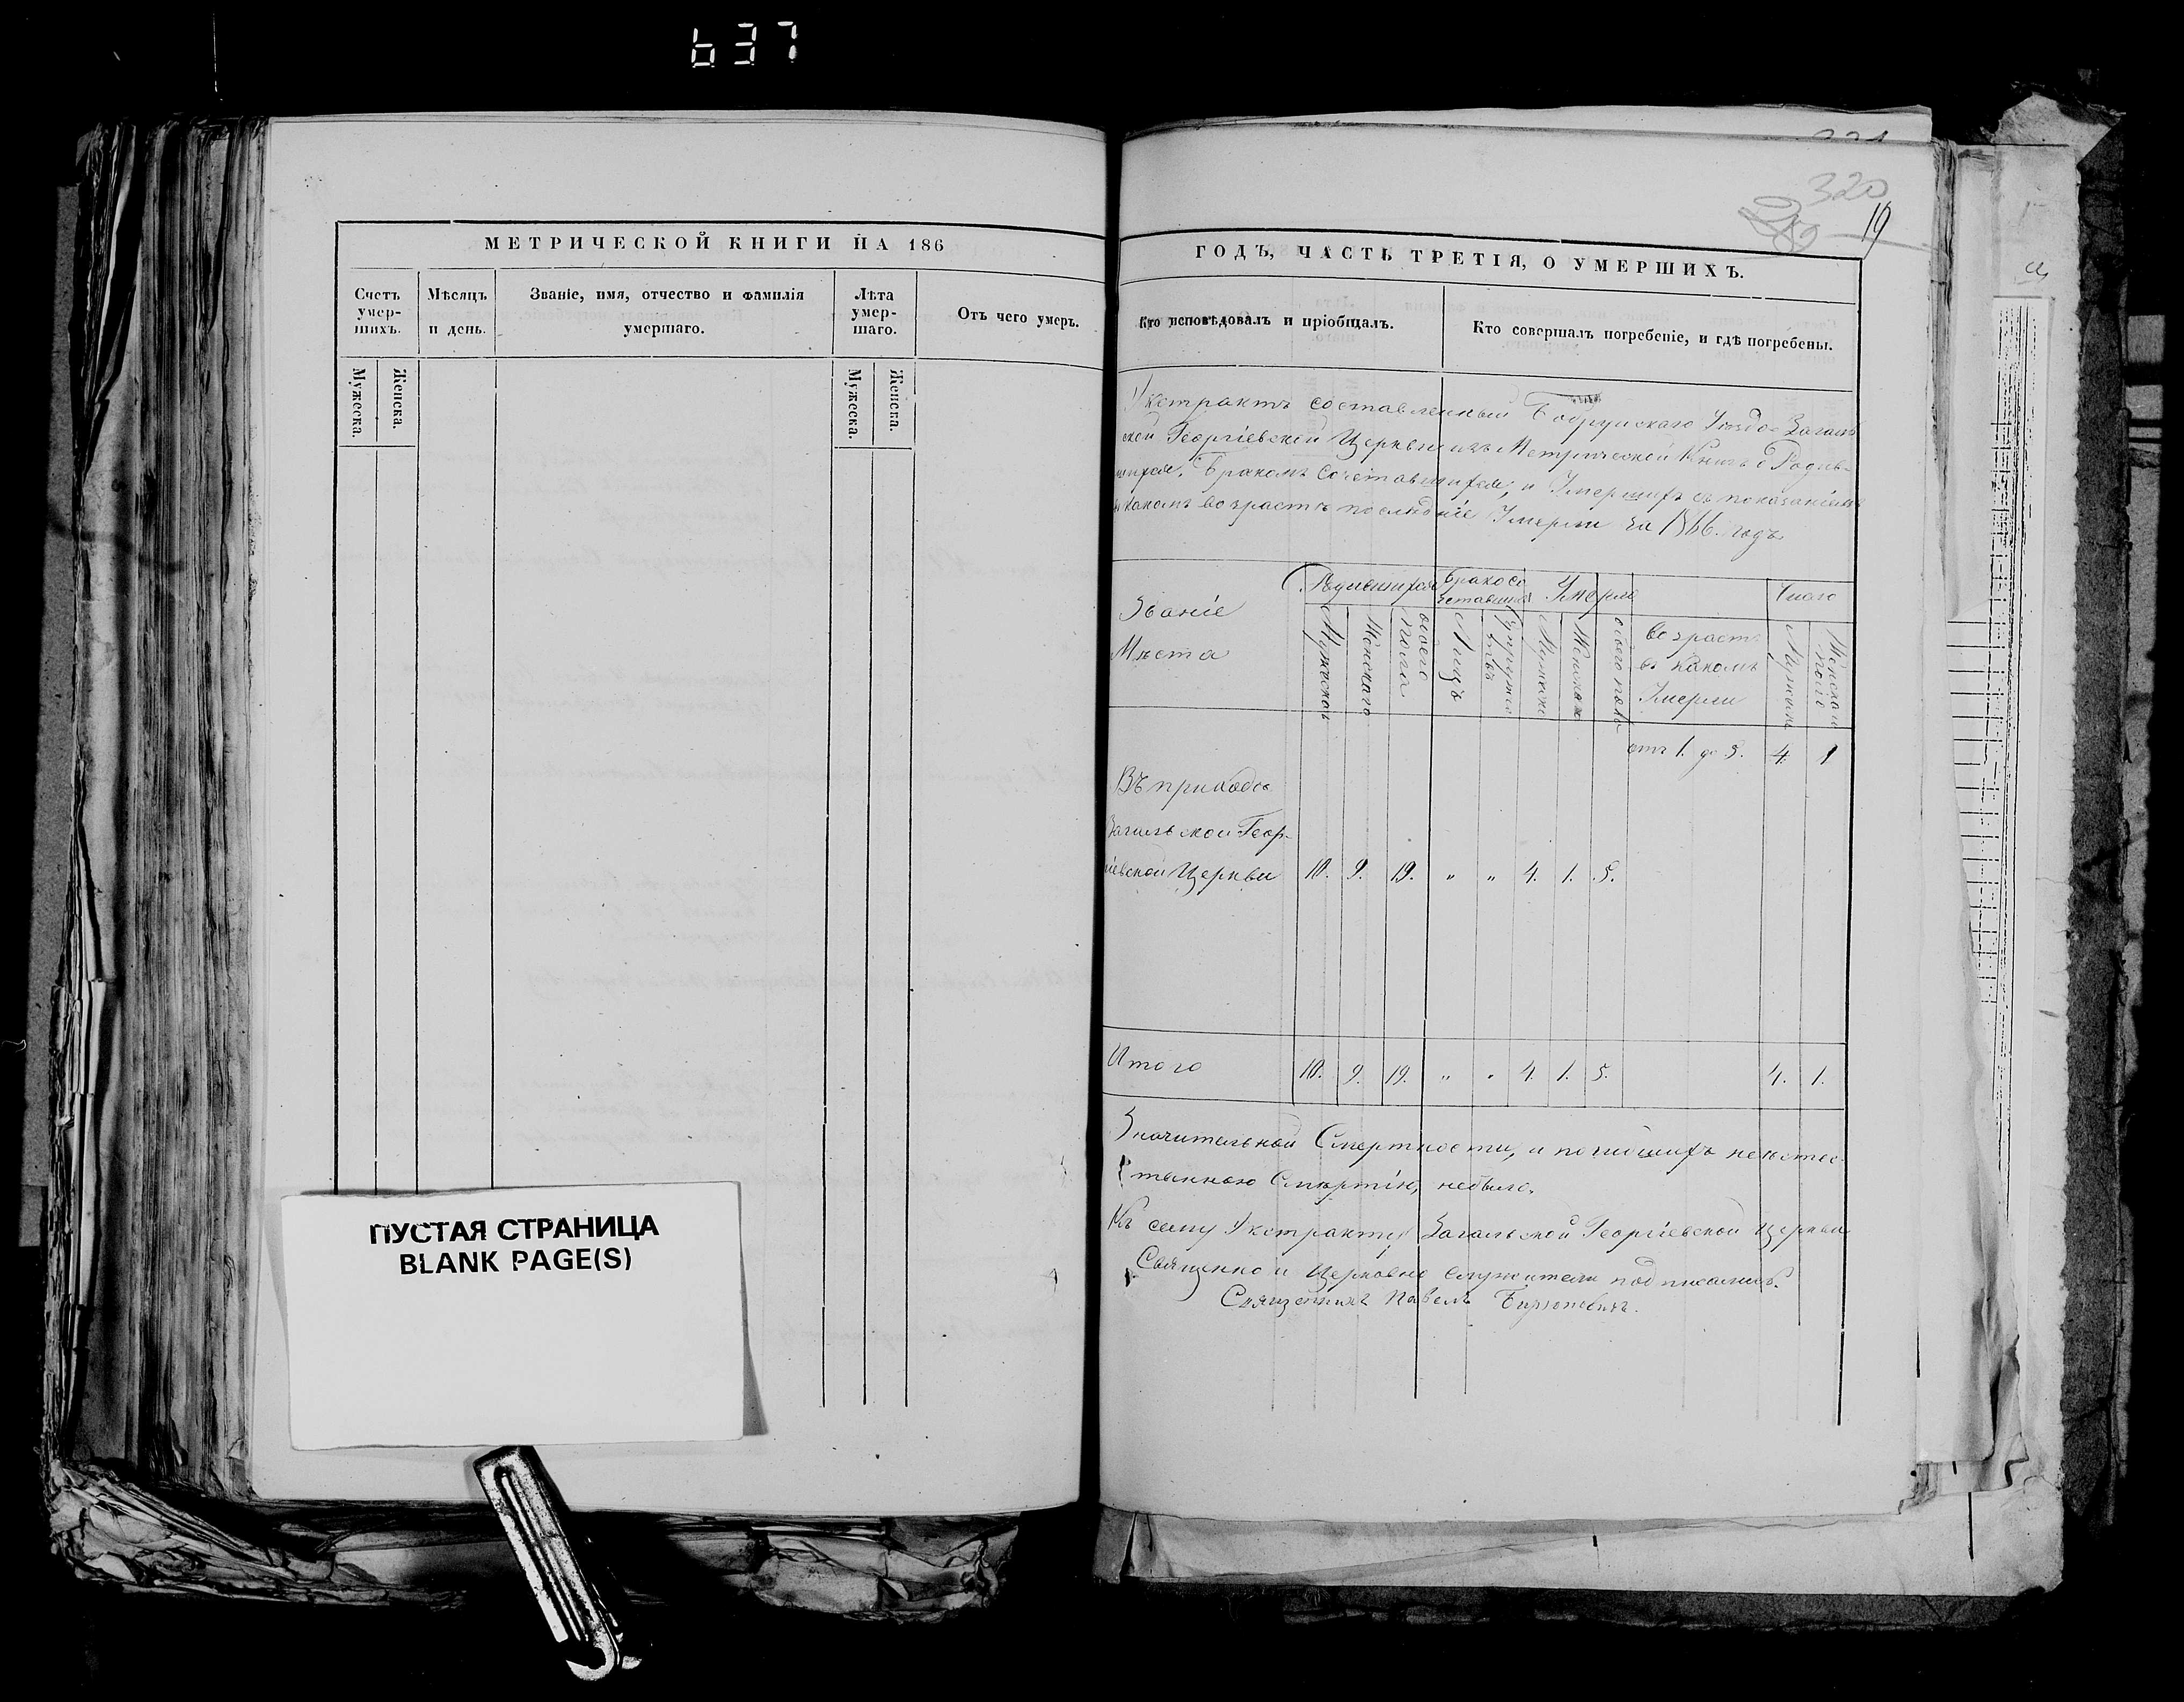 637
320
19
МЕТРИЧЕСКОЙ КНИГИ НА 186
Счетъ умер-шихъ.
Мужеска.
Женска.
Мѣсяцъ и день.
Званіе, имя, отчество и фамилія умершаго.
Лѣта умер-шаго.
Мужеска.
Женска.
Отъ чего умеръ.
ПУСТАЯ СТРАНИЦА
BLANK PAGE(S)
ГОДЪ, ЧАСТЬ ТРЕТІЯ, О УМЕРШИХЪ.
Кто исповѣдовалъ и пріобщалъ.
Кто совершалъ погребеніе, и гдѣ погребены.
Экстрактъ составленный Бобруйскаго Уѣзда Загаль
ской Георгіевской Церкви изъ Метрической Книги о Родив-
шихся, Бракомъ Сочетавшихся, и Умершихъ съ показаніемъ
въ какомъ возрастѣ послѣдніе Умерли за 1866. годъ
Званіе
Мѣста
Родившихся
Мужскаго
Женскаго
обоего пола
Бракосо
четавших
Лицъ
Супружествъ
Умерло
Мужеска
Женскаго
обоего пола
возрастъ
въ какомъ
Умерли
Число
Женскаго пола
отъ 1. до 5. 4. 1
Въ приходѣ
Загальской Геор-
гіевской Церкви 10. 9. 19. " " 4. 1. 5.
Итого 10. 9. 19. " " 4. 1. 5. 4. 1.
Значительной Смертности, и погибшихъ неестес-
твенною Смертію, небыло.
Къ сему Экстракту Загальской Георгіевской Церкви
Священно и Церковно служители подписались.
Священникъ Павелъ